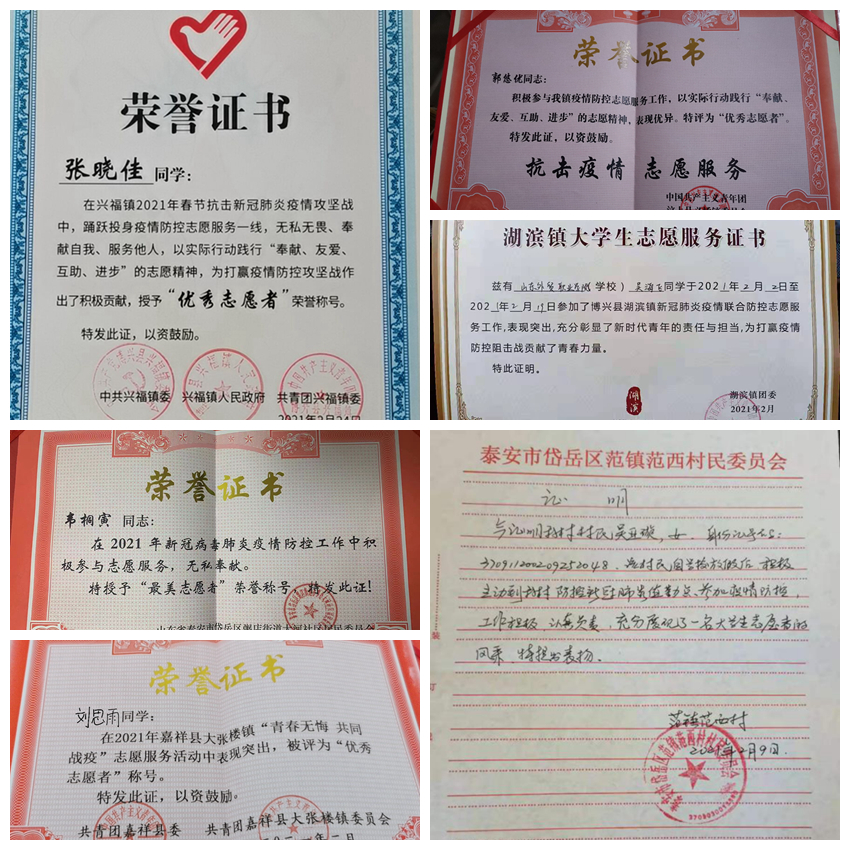 荣誉证书
张晓佳 同学：
在兴福镇2021年春节抗击新冠肺炎疫情攻坚战
中，踊跃投身疫情防控志愿服务一线，无私无畏、奉
献自我、服务他人，以实际行动践行“奉献、友爱、
互助、进步”的志愿精神，为打赢疫情防控攻坚战作
出了积极贡献，授予“优秀志愿者”荣誉称号。
特发此证，以资鼓励。
中共兴福镇委 兴福镇人民政府 共青团兴福镇委
2021年2月24日
荣誉证书
郭悠优同志：
积极参与我镇疫情防控志愿服务工作，以实际行动践行“奉献、
友爱、互助、进步”的志愿精神，表现优异。特评为“优秀志愿者”。
特发此证，以资鼓励。
抗击疫情 志愿服务
中国共产主义青年团
湖滨镇大学生志愿服务证书
兹有 山东外贸职业学院 学校）吴 同学于2021年2月2日至
2021年2月19日参加了博兴县湖滨镇新冠肺炎疫情联合防控志愿服
务工作,表现突出,充分彰显了新时代青年的责任与担当,为打赢疫情
防控阻击战贡献了青春力量。
特此证明。
湖滨
湖滨镇团委
2021年2月
荣誉证书
韦桐寅 同志：
在 2021 年新冠病毒肺炎疫情防控工作中积
极参与志愿服务，无私奉献。
特授予“最美志愿者”荣誉称号，特发此证！
山东省泰安市岱岳区 街道大河社区居民委员会
荣誉证书
刘思雨同学：
在2021年嘉祥县大张楼镇“青春无悔 共同
战疫”志愿服务活动中表现突出，被评为“优秀
志愿者”称号。
特发此证，以资鼓励。
共青团嘉祥县委 共青团嘉祥县大张楼镇委员会
泰安市岱岳区范镇范西村民委员会
证 明
今证明我村村民吴 璇，女，身份证号为：
370911200209252048，该村民自学校放假后，积极
主动到我村防控新冠肺炎值勤点，参加疫情防控，
工作积极，认真负责，充分展现了一名大学生志愿者的
风采，特提出表扬。
范镇范西村
2021年2月9日.